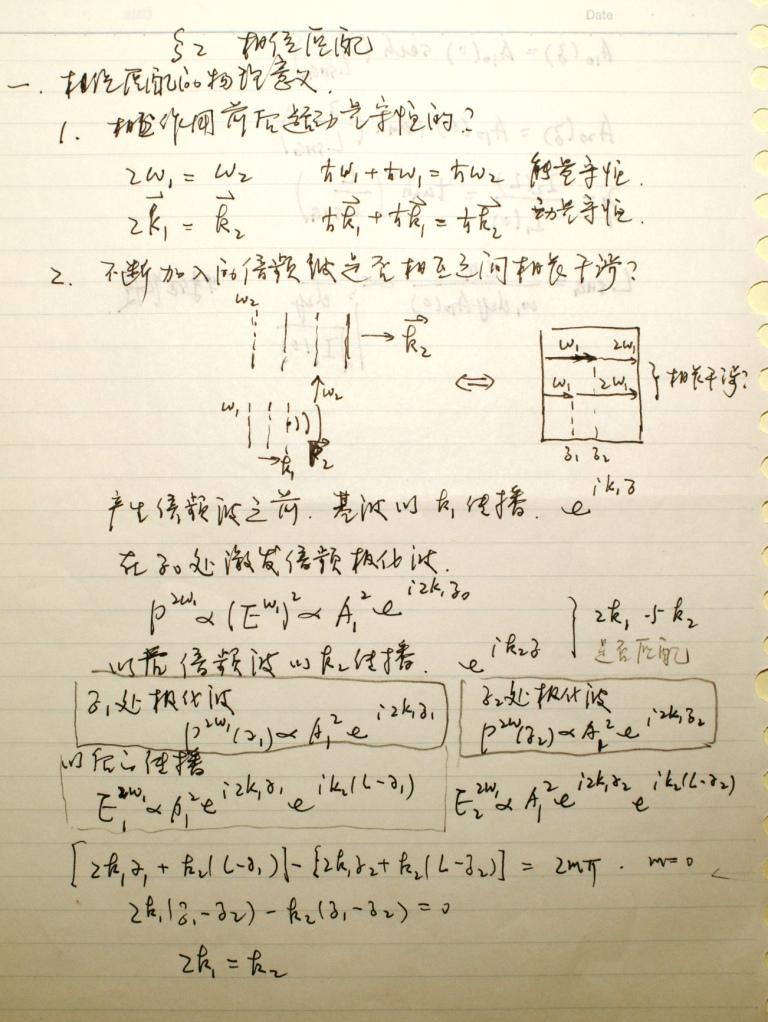 Date
§2 相位匹配
一. 相位匹配的物理意义.
1. 相互作用前后是动量守恒的?
2ω₁ = ω₂  ħω₁+ħω₁=ħω₂ 能量守恒.
2k⃗₁ = k⃗₂  ħk⃗₁+ħk⃗₁=ħk⃗₂ 动量守恒.
2. 不断加入的倍频波是否相互之间相长干涉?
ω₂ → k⃗₂
ω₁ ω₂ → k⃗₁ k⃗₂
⇔
ω₁ 2ω₁
ω₁ 2ω₁ } 相长干涉?
z₁ z₂
产生倍频波之前. 基波以k₁传播. e^{ik₁z}
在z₀处激发倍频极化波.
P^{2ω₁} ∝ (E^{ω₁})² ∝ A₁² e^{i2k₁z₀}
以后倍频波以k₂传播. e^{ik₂z} } 2k₁与k₂
是否匹配
z₁处极化波
P^{2ω₁}(z₁) ∝ A₁² e^{i2k₁z₁}
z₂处极化波
P^{2ω₁}(z₂) ∝ A₁² e^{i2k₁z₂}
以后之传播
E₁^{2ω₁} ∝ A₁² e^{i2k₁z₁} e^{ik₂(L-z₁)}
E₂^{2ω₁} ∝ A₁² e^{i2k₁z₂} e^{ik₂(L-z₂)}
[2k₁z₁ + k₂(L-z₁)] - [2k₁z₂ + k₂(L-z₂)] = 2mπ. m=0
2k₁(z₁-z₂) - k₂(z₁-z₂) = 0
2k₁ = k₂